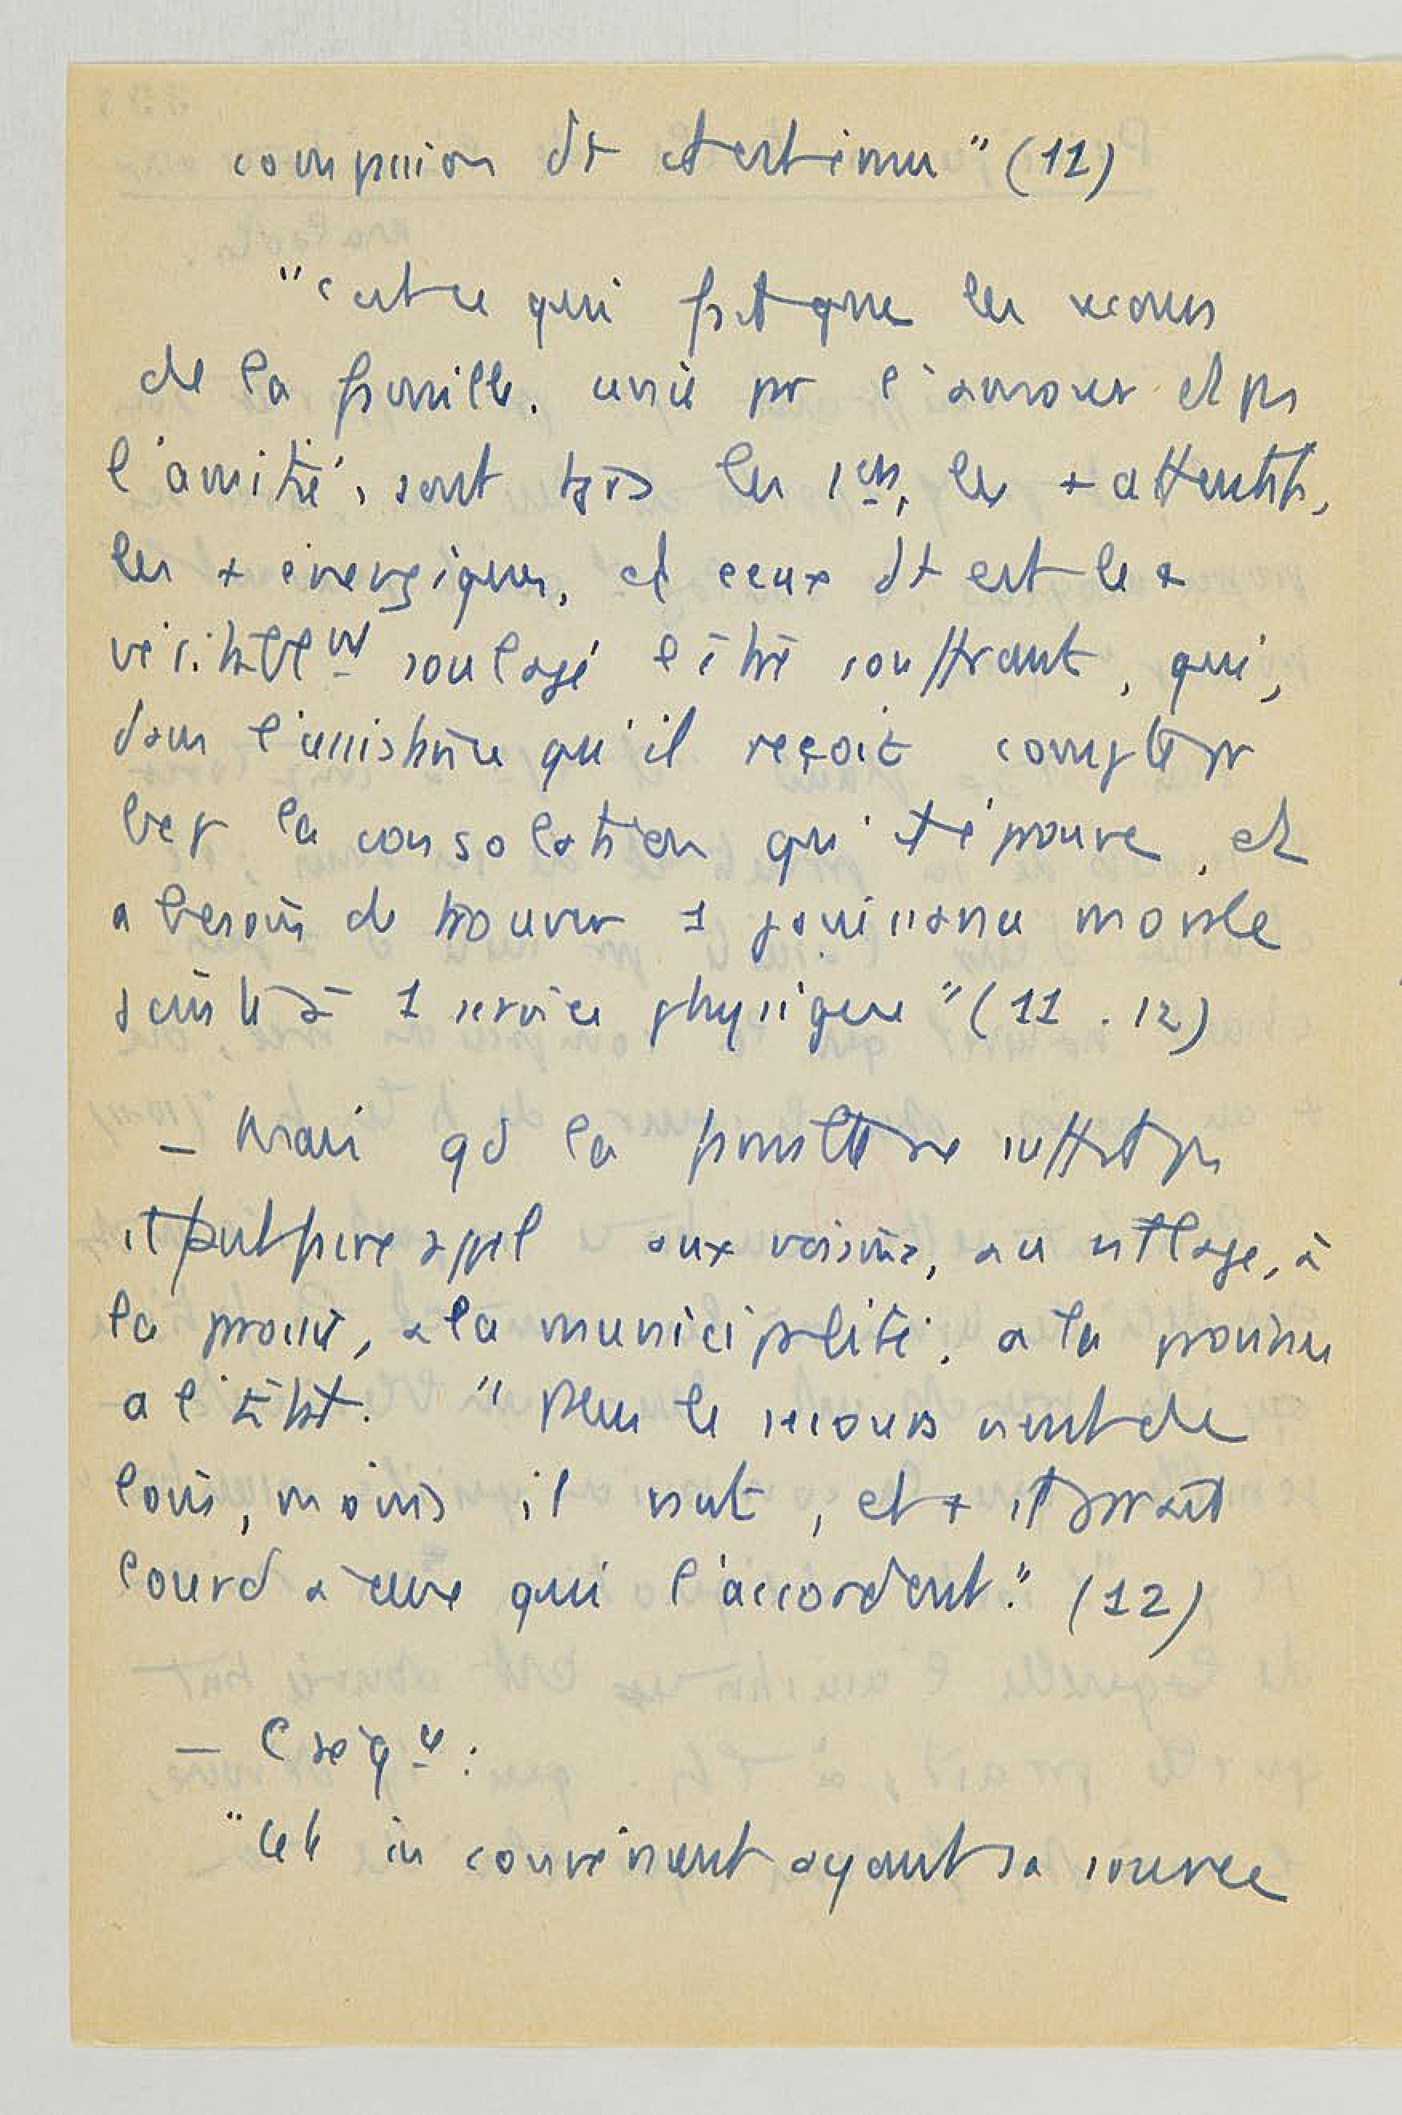 compassion dt elle est émue" (11)
"c'est ce qui fait que les secours
de la famille, unie par l'amour et par
l'amitié, sont tjrs les 1ers, les + attentifs,
les + énergiques, et ceux dt est le +
véritablemt soulagé l'être souffrant, qui,
dans l'assistance qu'il reçoit compte pr
bcp la consolation qu'il éprouve, et
a besoin de trouver 1 jouissance morale
jointe à 1 service physique" (11.12)
— Mais qd la famille ne suffit pas
il faut faire appel aux voisins, au village, à
la proximité, à la municipalité, à la province
à l'État. "Plus le secours vient de
loin, moins il vaut, et + il paraît
lourd à ceux qui l'accordent." (12)
—
"Cet inconvénient ayant sa source